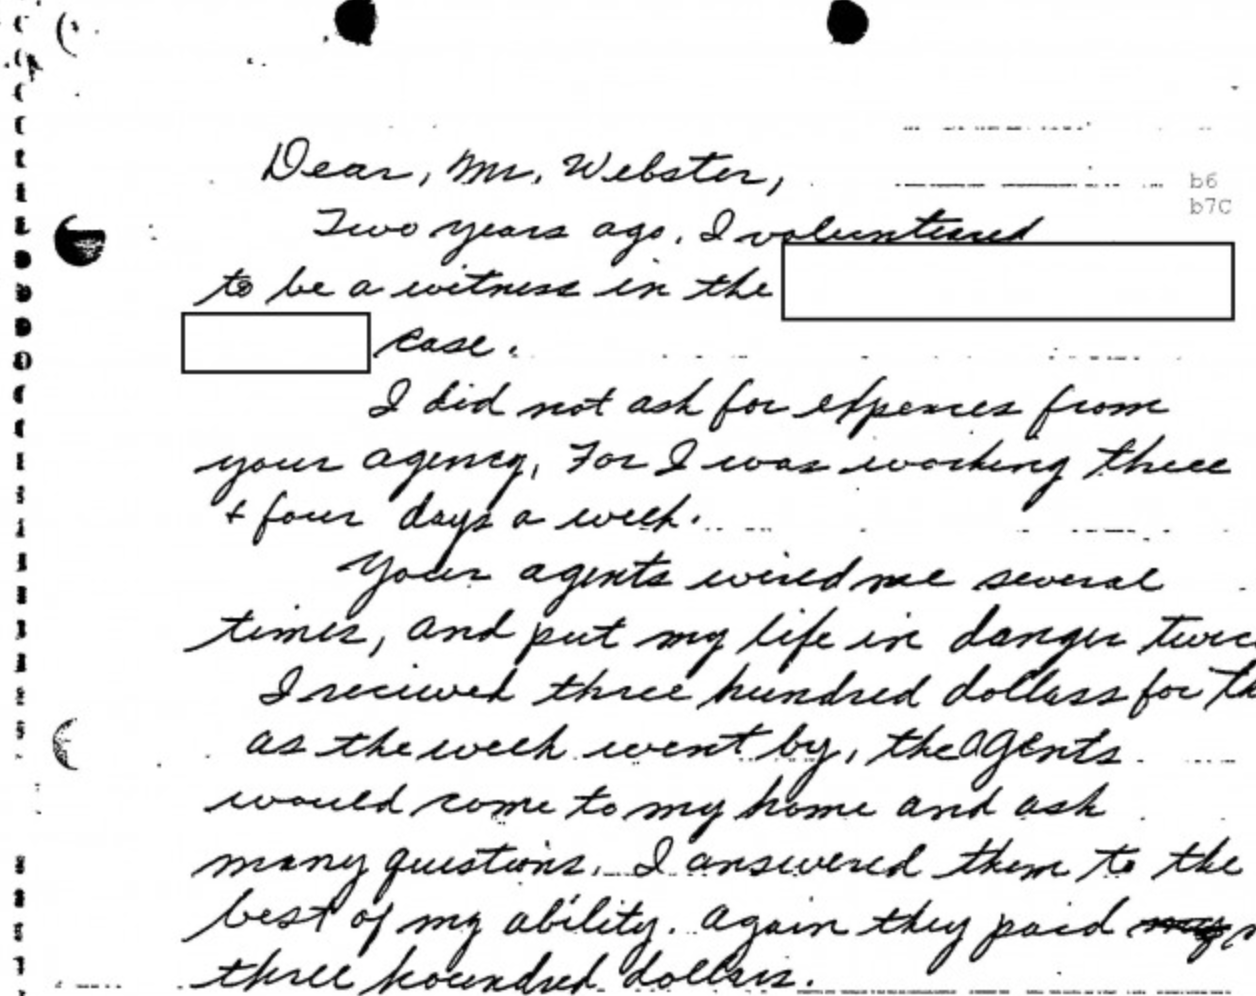 Dear, Mr. Webster,
b6
b7C
Two years ago, I volunteared
to be a witness in the
case.
I did not ask for expences from
your agency, For I was working three
+ four days a week.
Your agents wired me several
times, and put my life in danger twice
I recieved three hundred dollars for th
as the week went by, the agents
would come to my home and ask
many questions. I answered them to the
best of my ability. Again they paid
three houndred dollars.